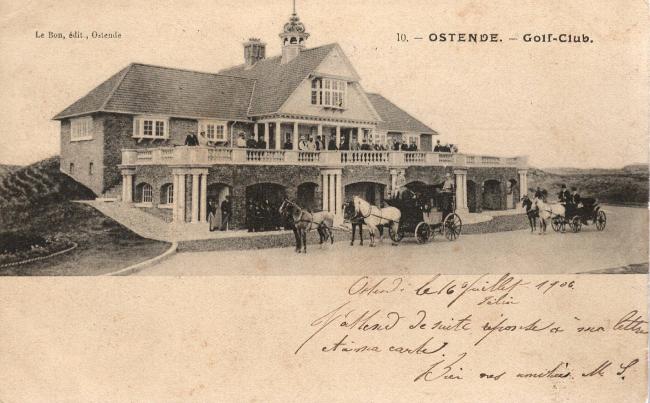 Le Bon, édit., Ostende
10. – OSTENDE. – Golf-Club.
Ostende le 16 Juillet 1906
J'attend de suite réponse à ma lettre
et à ma carte
Bien nos amitiés M S.